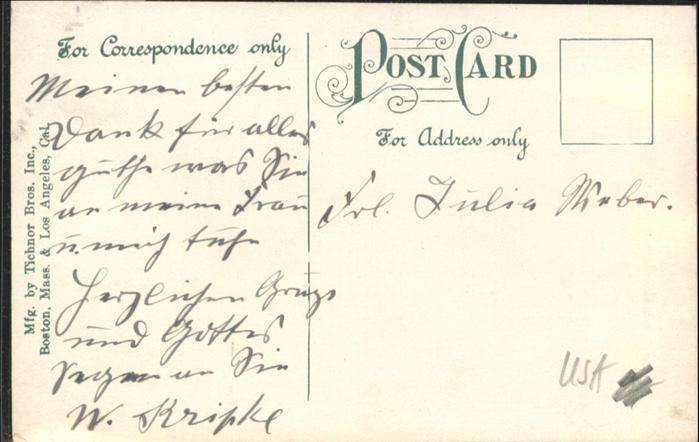 For Correspondence only
Meinen besten
Dank für alles
guthe was Sie
an meine Frau
u. mich tuhe
Herzlichen Gruß
und Gottes
Segen an Sie
W. Kripke
POST CARD
For Address only
Frl. Julia Weber.
USA
Mfg. by Tichnor Bros. Inc.,
Boston, Mass. & Los Angeles, Cal.